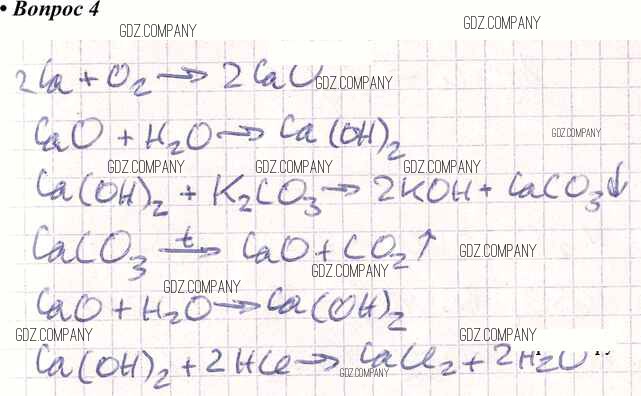 • Вопрос 4
GDZ.COMPANY GDZ.COMPANY
2Ca + O₂ → 2CaO
GDZ.COMPANY
CaO + H₂O → Ca(OH)₂
GDZ.COMPANY
GDZ.COMPANY GDZ.COMPANY GDZ.COMPANY
Ca(OH)₂ + K₂CO₃ → 2KOH + CaCO₃↓
CaCO₃ t→ CaO + CO₂↑
GDZ.COMPANY
GDZ.COMPANY
GDZ.COMPANY
CaO + H₂O → Ca(OH)₂
GDZ.COMPANY GDZ.COMPANY
Ca(OH)₂ + 2HCl → CaCl₂ + 2H₂O
GDZ.COMPANY